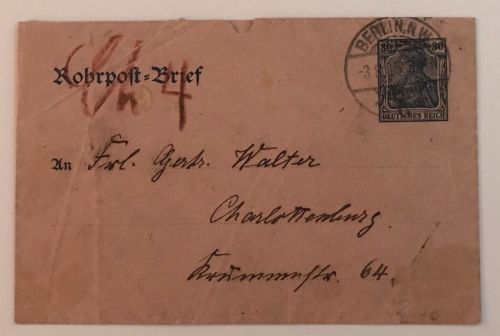 BERLIN, N.W.
30 30
-3.
DEUTSCHES REICH
Rohrpost=Brief
Ch 4
An Frl. Gertr. Walter
Charlottenburg
Krummestr. 64.